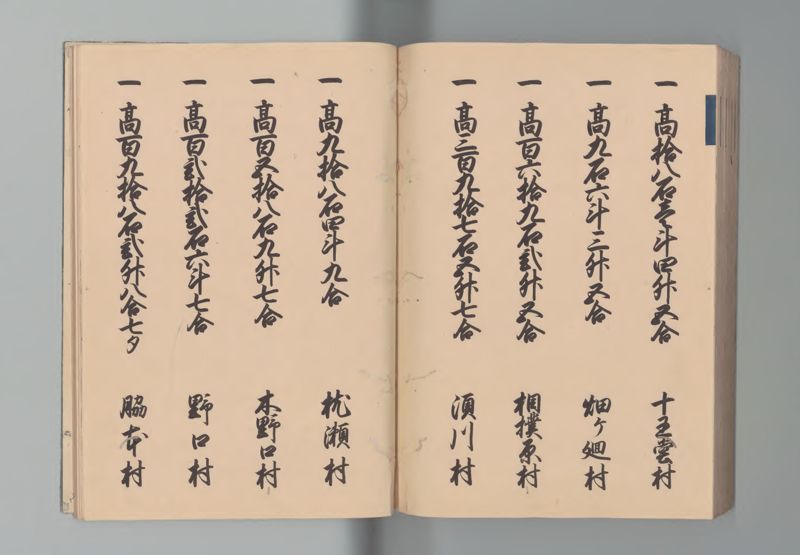 一 高拾八石壱斗四升五合 十王堂村
一 高九石六斗三升五合 畑ヶ廻村
一 高百六拾九石弐升五合 相撲原村
一 高三百九拾七石五升七合 須川村
一 高九拾八石四斗九合 杭瀬村
一 高百五拾八石九升七合 木野口村
一 高百弐拾弐石六斗七合 野口村
一 高百九拾八石弐升八合七夕 脇本村